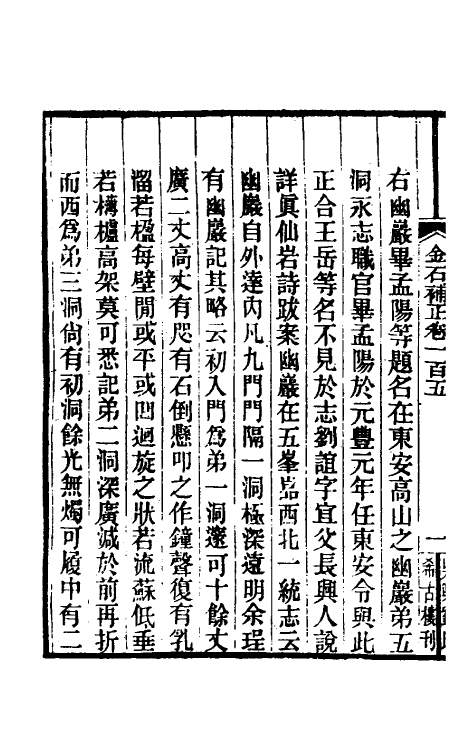 金石補正卷一百五
一
希古樓刊
右幽巖畢孟陽等題名在東安高山之幽巖弟五
洞永志職官畢孟陽於元豐元年任東安令與此
正合王岳等名不見於志劉誼字宜父長興人說
詳眞仙岩詩跋案幽巖在五峯嵓西北一統志云
幽巖自外達內凡九門門隔一洞極深遠明余珵
有幽巖記其略云初入門爲弟一洞邃可十餘丈
廣二丈高丈有咫有石倒懸叩之作鐘聲復有乳
溜若楹每壁閒或平或凹迴旋之狀若流蘇低垂
若欂櫨高架莫可悉記弟二洞深廣減於前再折
而西爲弟三洞尙有初洞餘光無燭可履中有二